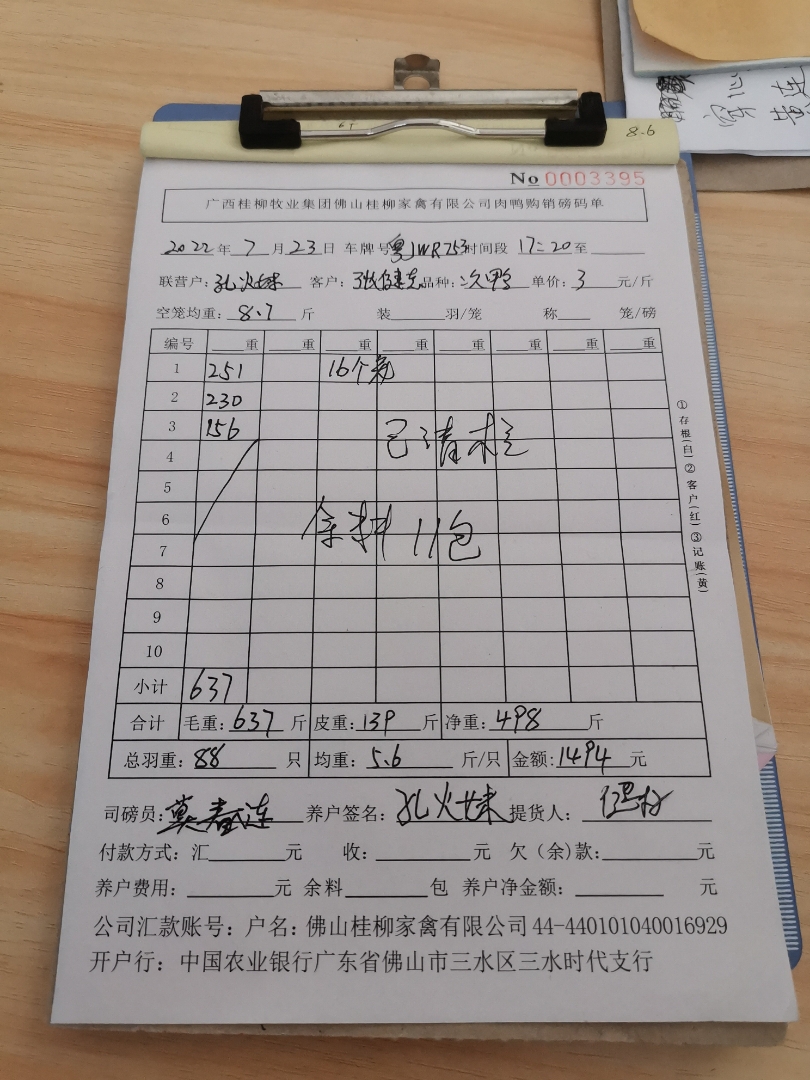 8.6
No 0003395
广西桂柳牧业集团佛山桂柳家禽有限公司肉鸭购销磅码单
2022年 7 月 23 日 车牌号 粤JWR753 时间段 17:20 至
联营户: 孔火妹 客户: 品种: 次鸭 单价: 3 元/斤
空笼均重: 8.7 斤 装 羽/笼 称 笼/磅
编号 重 重 重 重 重 重 重 重
1 251 16个笼
2 230
3 156 已清栏
4
5
6 余料11包
7
8
9
10
小计 637
合计 毛重: 637 斤 皮重: 139 斤 净重: 498 斤
总羽重: 88 只 均重: 5.6 斤/只 金额: 1494 元
司磅员: 莫春连 养户签名: 孔火妹 提货人:
付款方式: 汇 元 收: 元 欠(余)款: 元
养户费用: 元 余料 包 养户净金额: 元
公司汇款账号: 户名: 佛山桂柳家禽有限公司 44-440101040016929
开户行: 中国农业银行广东省佛山市三水区三水时代支行
①存根(白)②客户(红)③记账(黄)